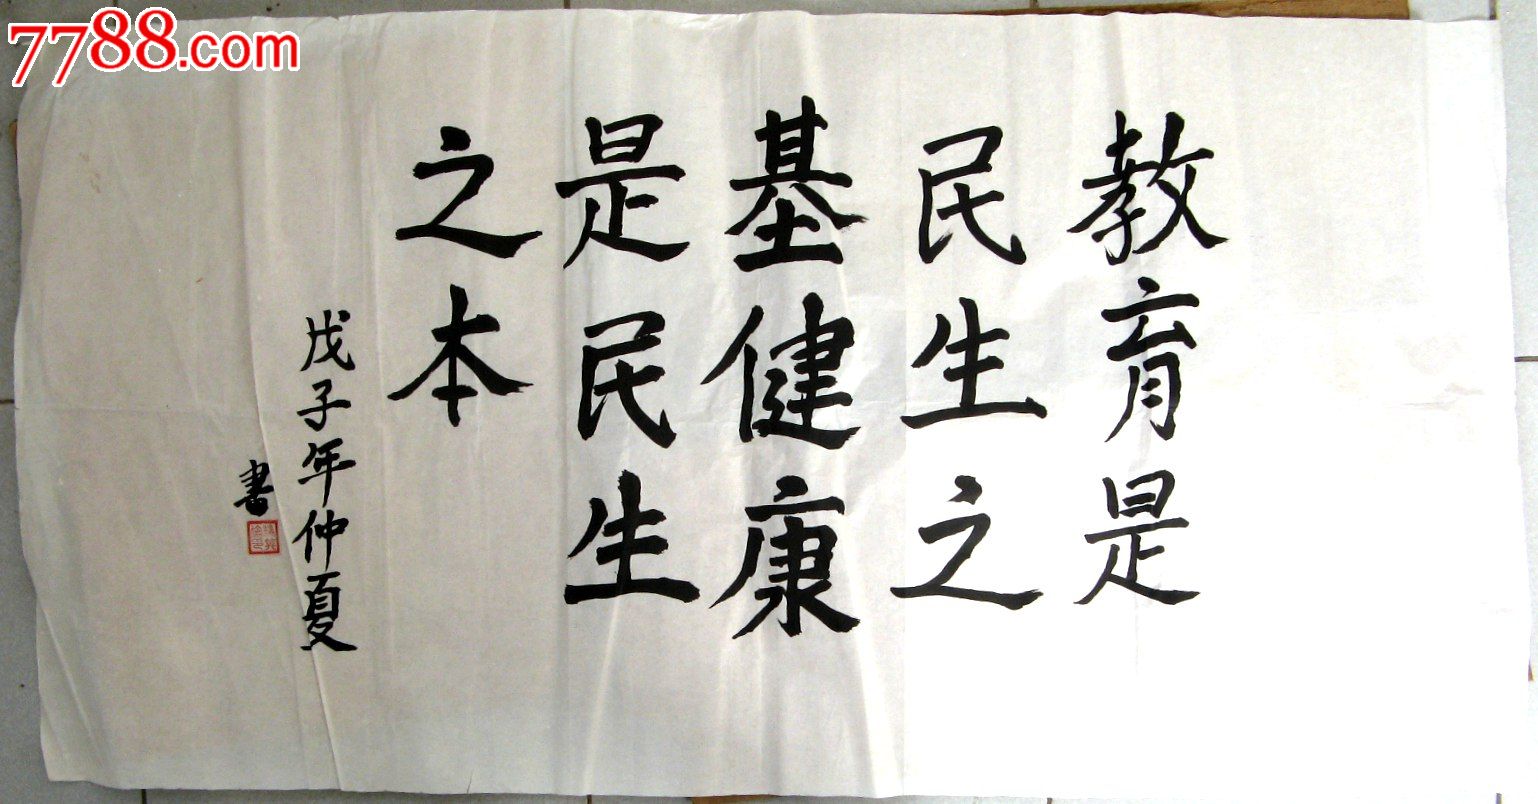 7788.com
教育是
民生之
基健康
是民生
之本
戊子年仲夏
書